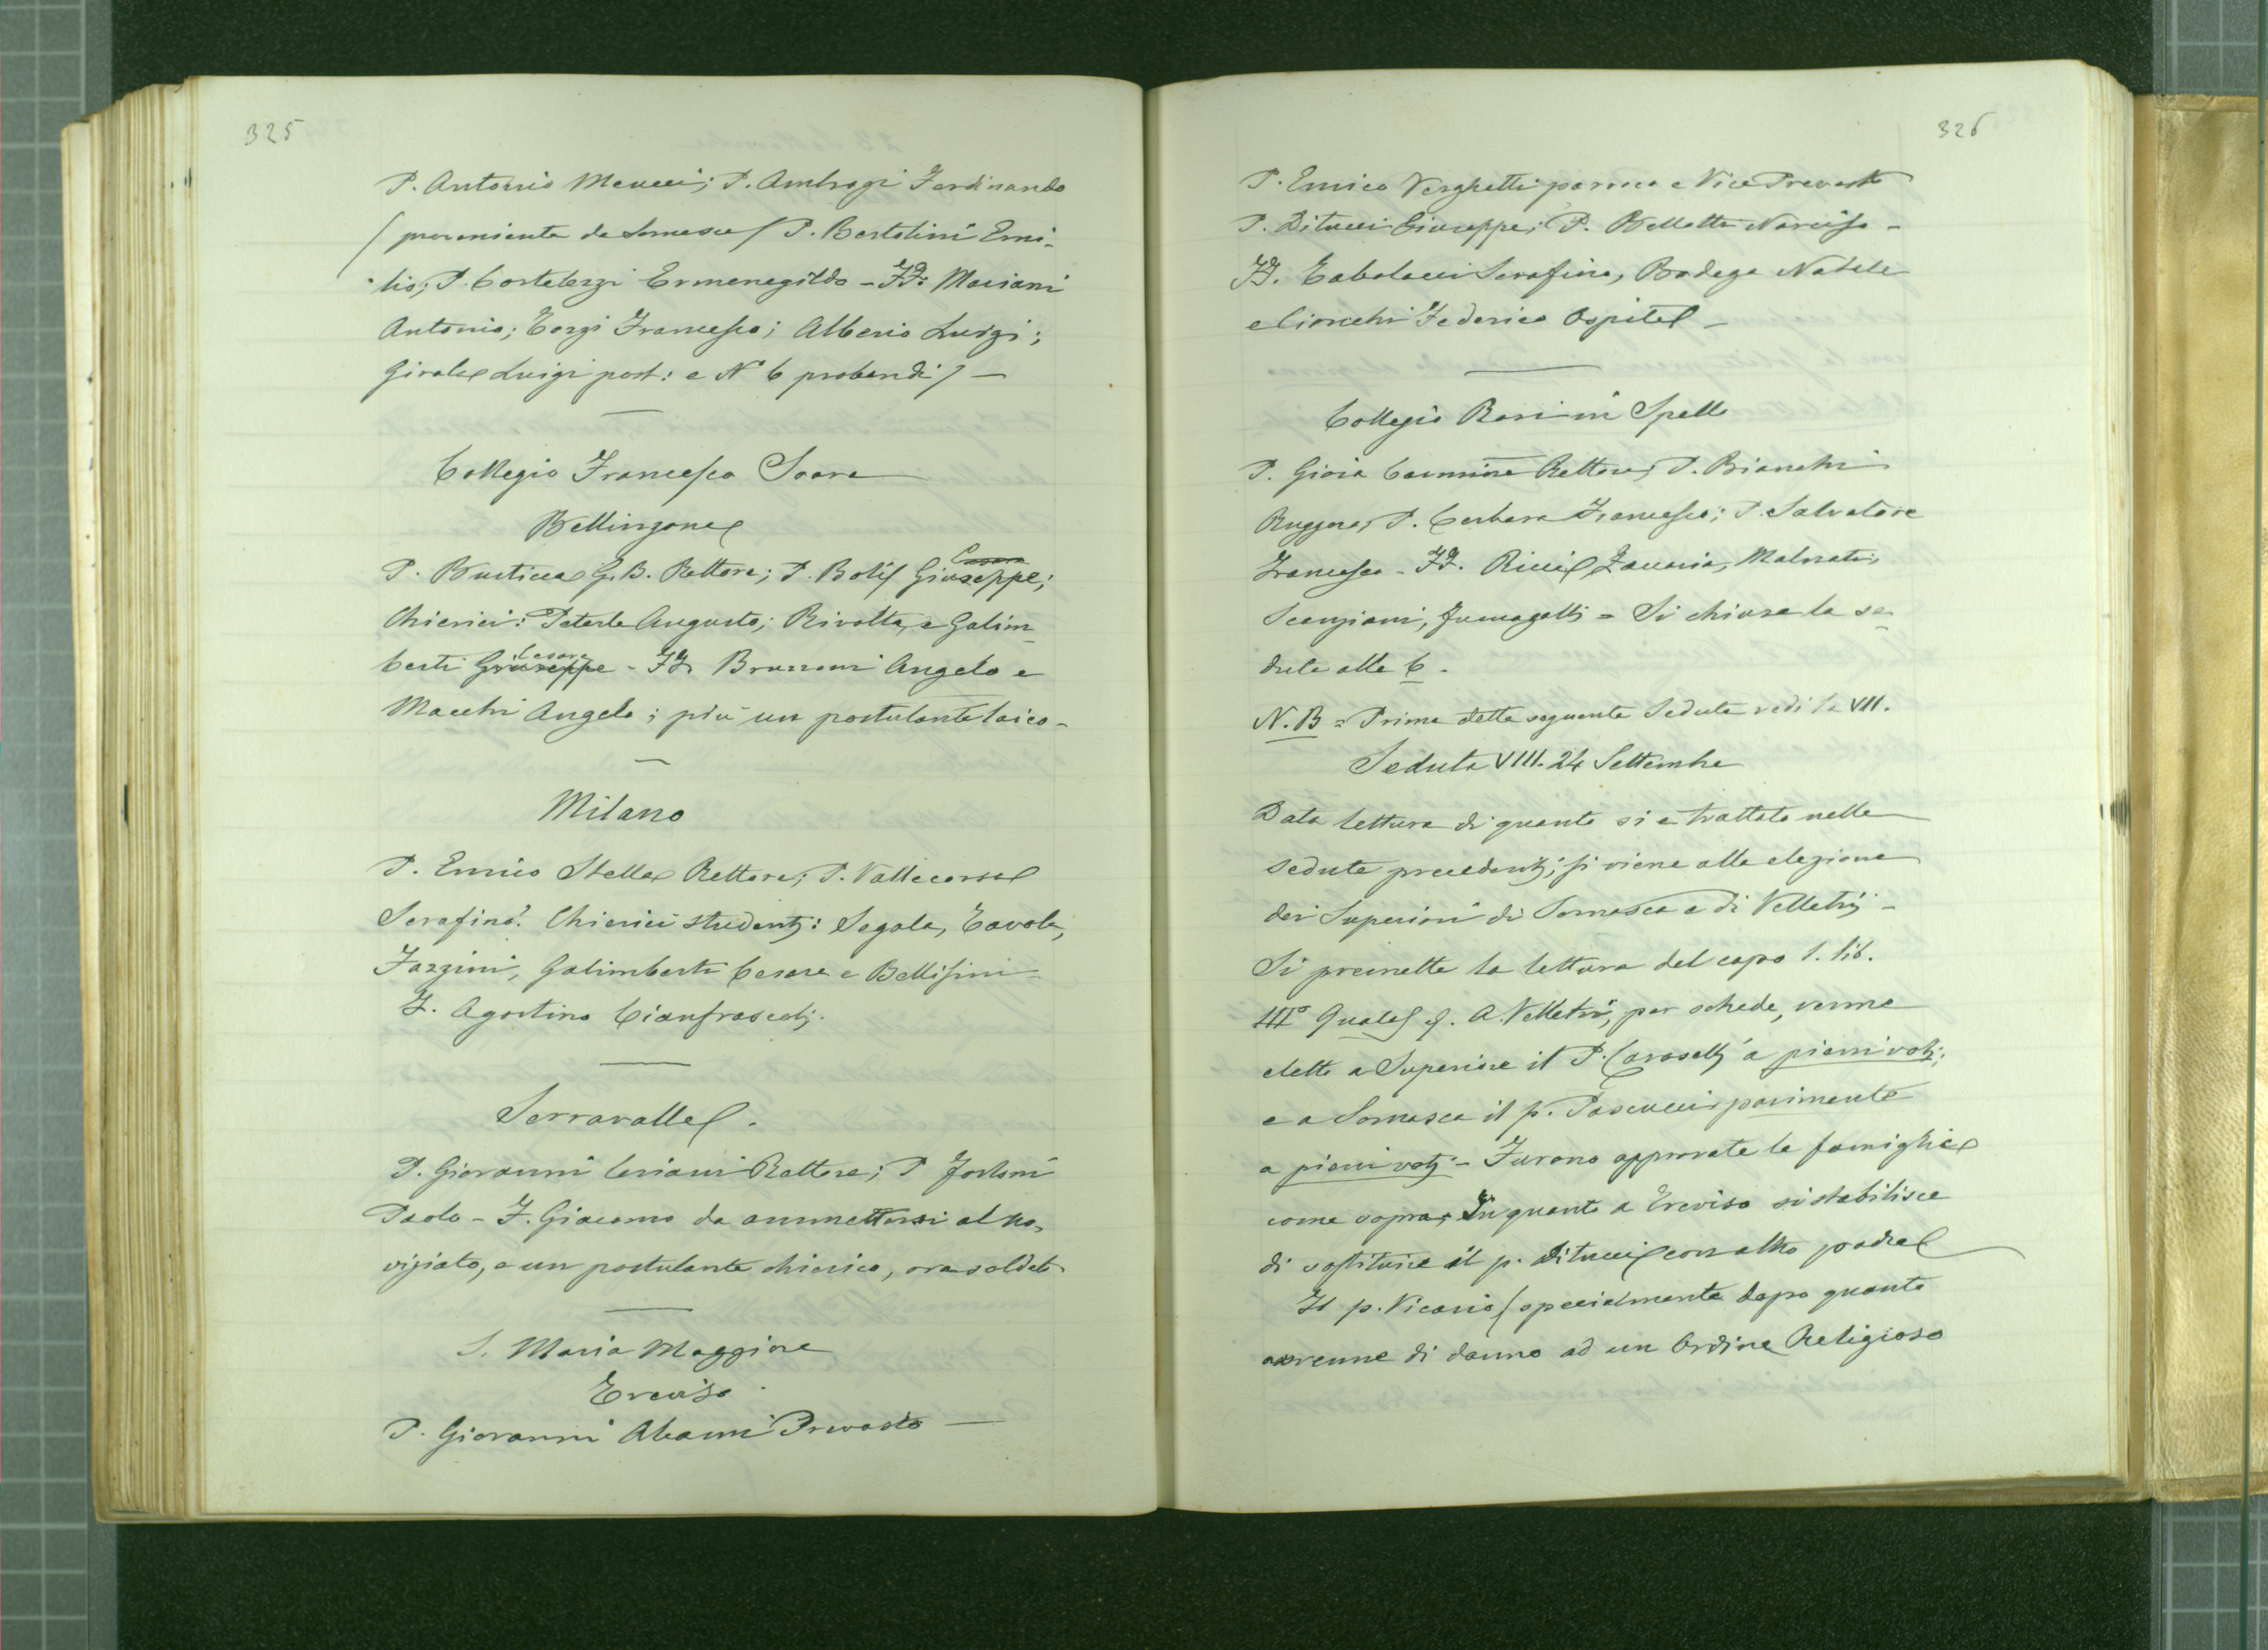 325
P. Antonio Meucci; P. Ambrogi Ferdinando
( proveniente da Somasca ) P. Bertolini Emi-
lio; P. Cortelezzi Ermenegildo - FF. Mariani
Antonio; Torgi Francesco; Alberio Luigi;
Girola Luigi post: e N° 6 probandi) -
Collegio Francesco Soave
Bellinzona
P. Busticca G. B. Rettore; P. Bolis Giuseppe;
Chierici: Peterle Augusto; Rivolta, e Galim
berti Cesare - FF. Brusoni Angelo e
Macchi Angelo; più un postulante laico -
Milano
P. Enrico Stella Rettore; P. Vallecorsa
Serafino. Chierici studenti: Segala, Tavola,
Fazzini, Galimberti Cesare e Bellisini
F. Agostino Cianfrocedi.
Serravalle.
P. Giovanni Ceriani Rettore; P
Paolo - F. Giacomo da ammettersi al no-
viziato, e un postulante chierico, ora soldato
S. Maria Maggiore
Treviso
P. Giovanni Alcaini Prevosto -
326
P. Enrico Verghetti parroco e Vice Prevosto
P. Ditucci Giuseppe; P. Bellotta Narciso -
FF. Tabolacci Serafino, Bodega Natale
e Cionchi Federico Ospite -
Collegio Rosi in Spello
P. Gioia Carmine Rettore, P. Bianchi
Ruggero, P. Cerbara Francesco; P. Salvatore
Francesco - FF. Ricci Zaccaria, Malnati,
Scanziani, Fumagalli = Si chiuse la se-
duta alle 6.
N. B = Prima della seguente Seduta vedi la VII.
Seduta VIII. 24 Settembre
Data lettura di quanto si è trattato nelle
sedute precedenti, si viene alla elezione
dei Superiori di Somasca e di Velletri -
Si premette la lettura del capo 1. lib.
III° Quales &. A Velletri, per schede, venne
eletto a Superiore il P. Caroselli a pieni voti;
e a Somasca il p. Pascucci, parimente
a pieni voti - Furono approvate le famiglie
come sopra; In quanto a Treviso si stabilisce
di sostituire il p. Ditucci con altro padre
Il p. Vicario ( specialmente dopo quanto
avvenne di danno ad un Ordine Religioso